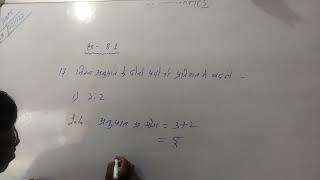 Ex- 8.1
17 निम्न अनुपात के दोनों पदों को प्रतिशत में बदलो -
i) 3:2
अनुपात का योग = 3+2
= 5